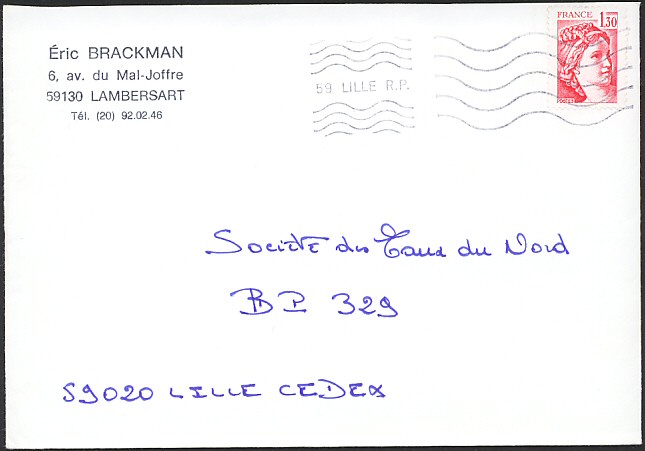 Éric BRACKMAN
6, av. du Mal-Joffre
59130 LAMBERSART
Tél. (20) 92.02.46
59 LILLE R.P.
FRANCE
1,30
POSTES
Société des Eaux du Nord
BP 329
59020 LILLE CEDEX